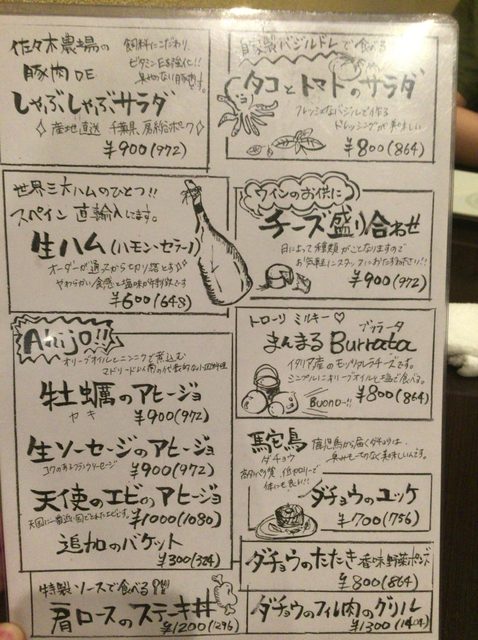 佐々木農場の
豚肉DE
飼料にこだわり
ビタミンE強化!!
臭みのない豚肉です。
しゃぶしゃぶサラダ
産地直送 千葉県 房総ポーク
¥900(972)
自家製バジルドレで食べる
タコとトマトのサラダ
フレッシュなバジルで作る
ドレッシングが美味しい
¥800(864)
世界三大ハムのひとつ!!
スペイン 直輸入してます。
生ハム(ハモン・セラーノ)
オーダーが通ってから切り落とす
やわらかい食感と塩味が特徴です
¥600(648)
ワインのお供に
チーズ盛り合わせ
日によって種類がことなりますので
お気軽にスタッフにおたずね下さい!!
¥900(972)
Ahijo!!
オリーブオイルとニンニクで煮込む
マドリード以南の代表的な小皿料理
牡蠣のアヒージョ
カキ
¥900(972)
生ソーセージのアヒージョ
コクのあるフランクソーセージ
¥900(972)
天使のエビのアヒージョ
天国に一番近い国でとれたエビです。
¥1000(1080)
追加のバケット
¥300(324)
トローリ ミルキー♡
ブッラータ
まんまるBurrata
イタリア産のモッツァレラチーズです。
シンプルにオリーブオイルと塩で食べる。
BUONO-!!
¥800(864)
駝鳥
ダチョウ
鹿児島から届くダチョウは、
臭みもへてなく美味しいんです。
高タンパク質、低カロリーで
体にも良い!!
ダチョウのユッケ
¥700(756)
ダチョウのたたき 香味野菜ポン酢
¥800(864)
特製ソースで食べる
肩ロースのステーキ丼
¥1200(1296)
ダチョウのフィル肉のグリル
¥1300(1404)